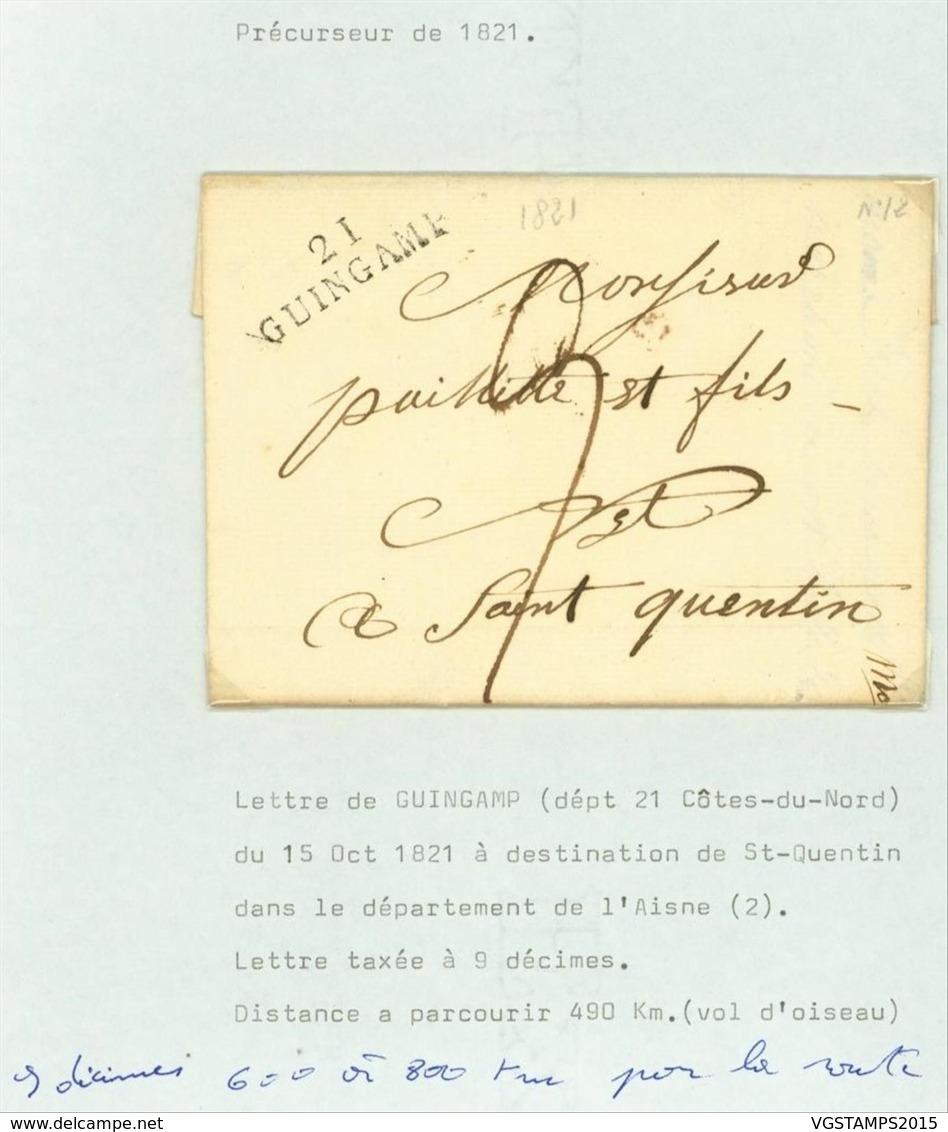 Précurseur de 1821.
21
GUINGAMP
1821
N°12
Monsieur
paillette et fils -
Ngt
a Saint quentin
Lettre de GUINGAMP (dépt 21 Côtes-du-Nord)
du 15 Oct 1821 à destination de St-Quentin
dans le département de l'Aisne (2).
Lettre taxée à 9 décimes.
Distance a parcourir 490 Km.(vol d'oiseau)
9 décimes 600 à 800 km par la route
www.delcampe.net
VGSTAMPS2015